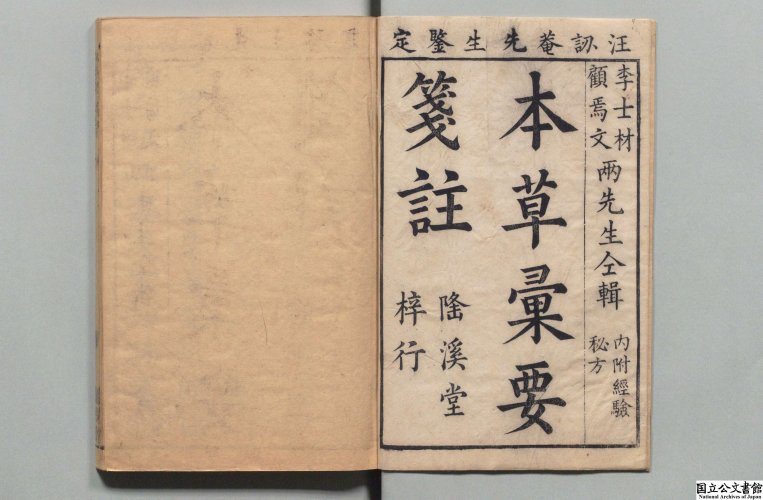 汪訒菴先生鑒定
李士材
顧焉文
兩先生仝輯
內附經驗
秘方
本草彙要
箋註
隆溪堂
梓行
国立公文書館
National Archives of Japan